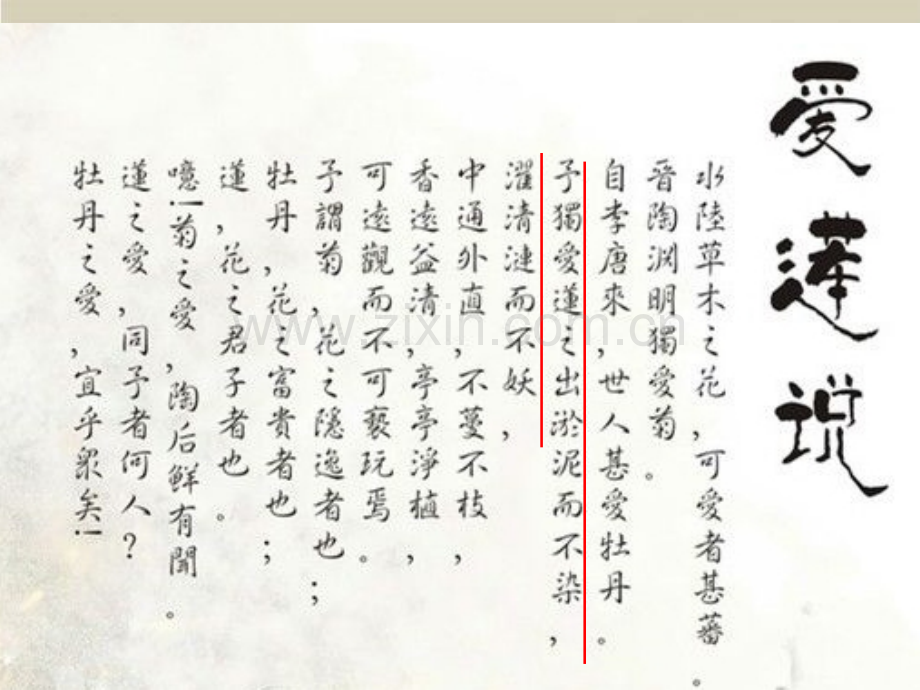 爱莲说
水陸草木之花，可爱者甚蕃。
晉陶渊明獨爱菊。
自李唐來，世人甚爱牡丹。
予獨爱蓮之出淤泥而不染，
濯清漣而不妖，
中通外直，不蔓不枝，
香遠益清，亭亭淨植，
可遠觀而不可褻玩焉。
予謂菊，花之隱逸者也；
牡丹，花之富貴者也；
蓮，花之君子者也。
噫！菊之爱，陶后鮮有聞。
蓮之爱，同予者何人？
牡丹之爱，宜乎眾矣！
www.zixin.com.cn